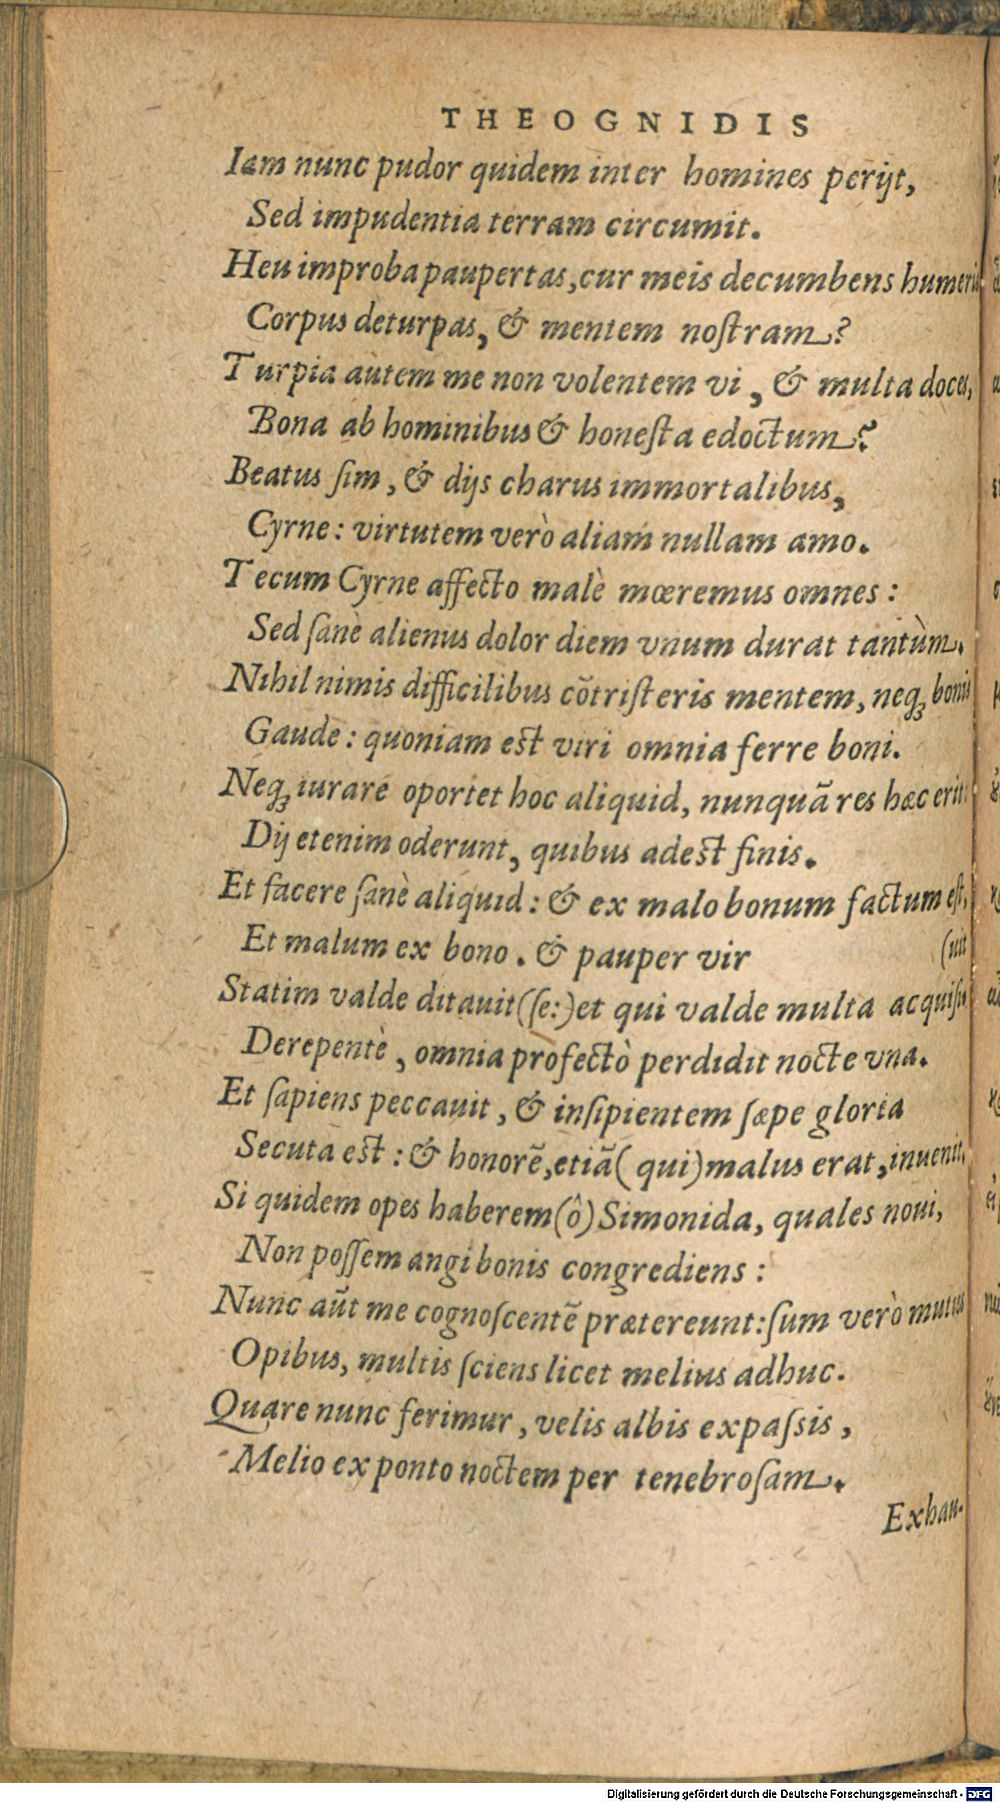 THEOGNIDIS
Iam nunc pudor quidem inter homines perijt,
Sed impudentia terram circumit.
Heu improba paupertas, cur meis decumbens humeris
Corpus deturpas, & mentem nostram?
Turpia autem me non volentem vi, & multa doces,
Bona ab hominibus & honesta edoctum?
Beatus sim, & dijs charus immortalibus,
Cyrne: virtutem verò aliam nullam amo.
Tecum Cyrne affecto malè mœremus omnes:
Sed sanè alienus dolor diem vnum durat tantùm.
Nihil nimis difficilibus cõtristeris mentem, neq; bonis
Gaude: quoniam est viri omnia ferre boni.
Neq; iurare oportet hoc aliquid, nunquã res hæc erit:
Dij etenim oderunt, quibus adest finis.
Et facere sanè aliquid: & ex malo bonum factum est,
Et malum ex bono. & pauper vir (uit
Statim valde ditauit (se:) et qui valde multa acquisi-
Derepentè, omnia profectò perdidit nocte vna.
Et sapiens peccauit, & insipientem sæpe gloria
Secuta est: & honorẽ, etiã (qui) malus erat, inuenit.
Si quidem opes haberem (ô) Simonida, quales noui,
Non possem angi bonis congrediens:
Nunc aũt me cognoscentẽ prætereunt: sum verò mutus
Opibus, multis sciens licet melius adhuc.
Quare nunc ferimur, velis albis expassis,
Melio ex ponto noctem per tenebrosam.
Exhau-
Digitalisierung gefördert durch die Deutsche Forschungsgemeinschaft - DFG